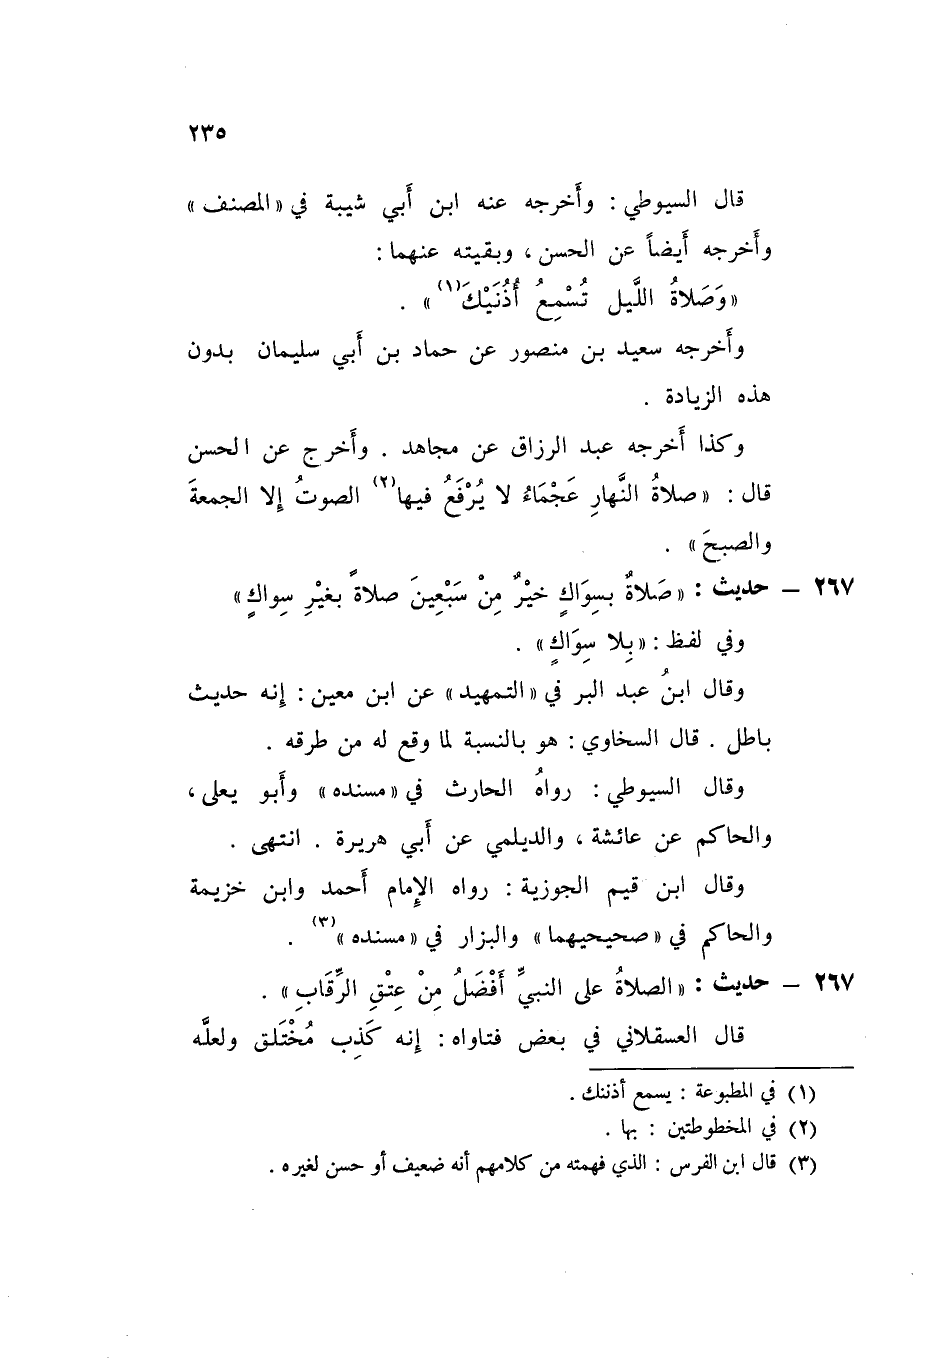 ٢٣٥
قال السيوطي : وأَخرجه عنه ابن أَبي شيبة في «المصنف»
وأَخرجه أَيضاً عن الحسن ، وبقيته عنهما :
«وَصَلاةُ اللَّيل تُسْمِعُ أُذُنَيْكَ(١)» .
وأَخرجه سعيد بن منصور عن حماد بن أَبي سليمان بدون
هذه الزيادة .
وكذا أَخرجه عبد الرزاق عن مجاهد . وأَخرج عن الحسن
قال : «صلاةُ النَّهارِ عَجْمَاءُ لا يُرْفَعُ فيها(٢) الصوتُ إِلا الجمعةَ
والصبحَ» .
٢٦٧ – حديث : «صَلاةٌ بسِوَاكٍ خيْرٌ مِنْ سَبْعِينَ صلاةً بغيْرِ سِواكٍ»
وفي لفظ : «بِلا سِوَاكٍ» .
وقال ابنُ عبد البر في «التمهيد» عن ابن معين : إِنه حديث
باطل . قال السخاوي : هو بالنسبة لما وقع له من طرقه .
وقال السيوطي : رواهُ الحارث في «مسنده» وأَبو يعلى ،
والحاكم عن عائشة ، والديلمي عن أَبي هريرة . انتهى .
وقال ابن قيم الجوزية : رواه الإِمام أَحمد وابن خزيمة
والحاكم في «صحيحيهما» والبزار في «مسنده»(٣) .
٢٦٧ – حديث : «الصلاةُ على النبيِّ أَفْضَلُ مِنْ عِتْقِ الرِّقَابِ» .
قال العسقلاني في بعض فتاواه : إِنه كَذِب مُخْتَلق ولعلَّه
(١) في المطبوعة : يسمع أذننك .
(٢) في المخطوطتين : بها .
(٣) قال ابن الفرس : الذي فهمته من كلامهم أنه ضعيف أو حسن لغيره .